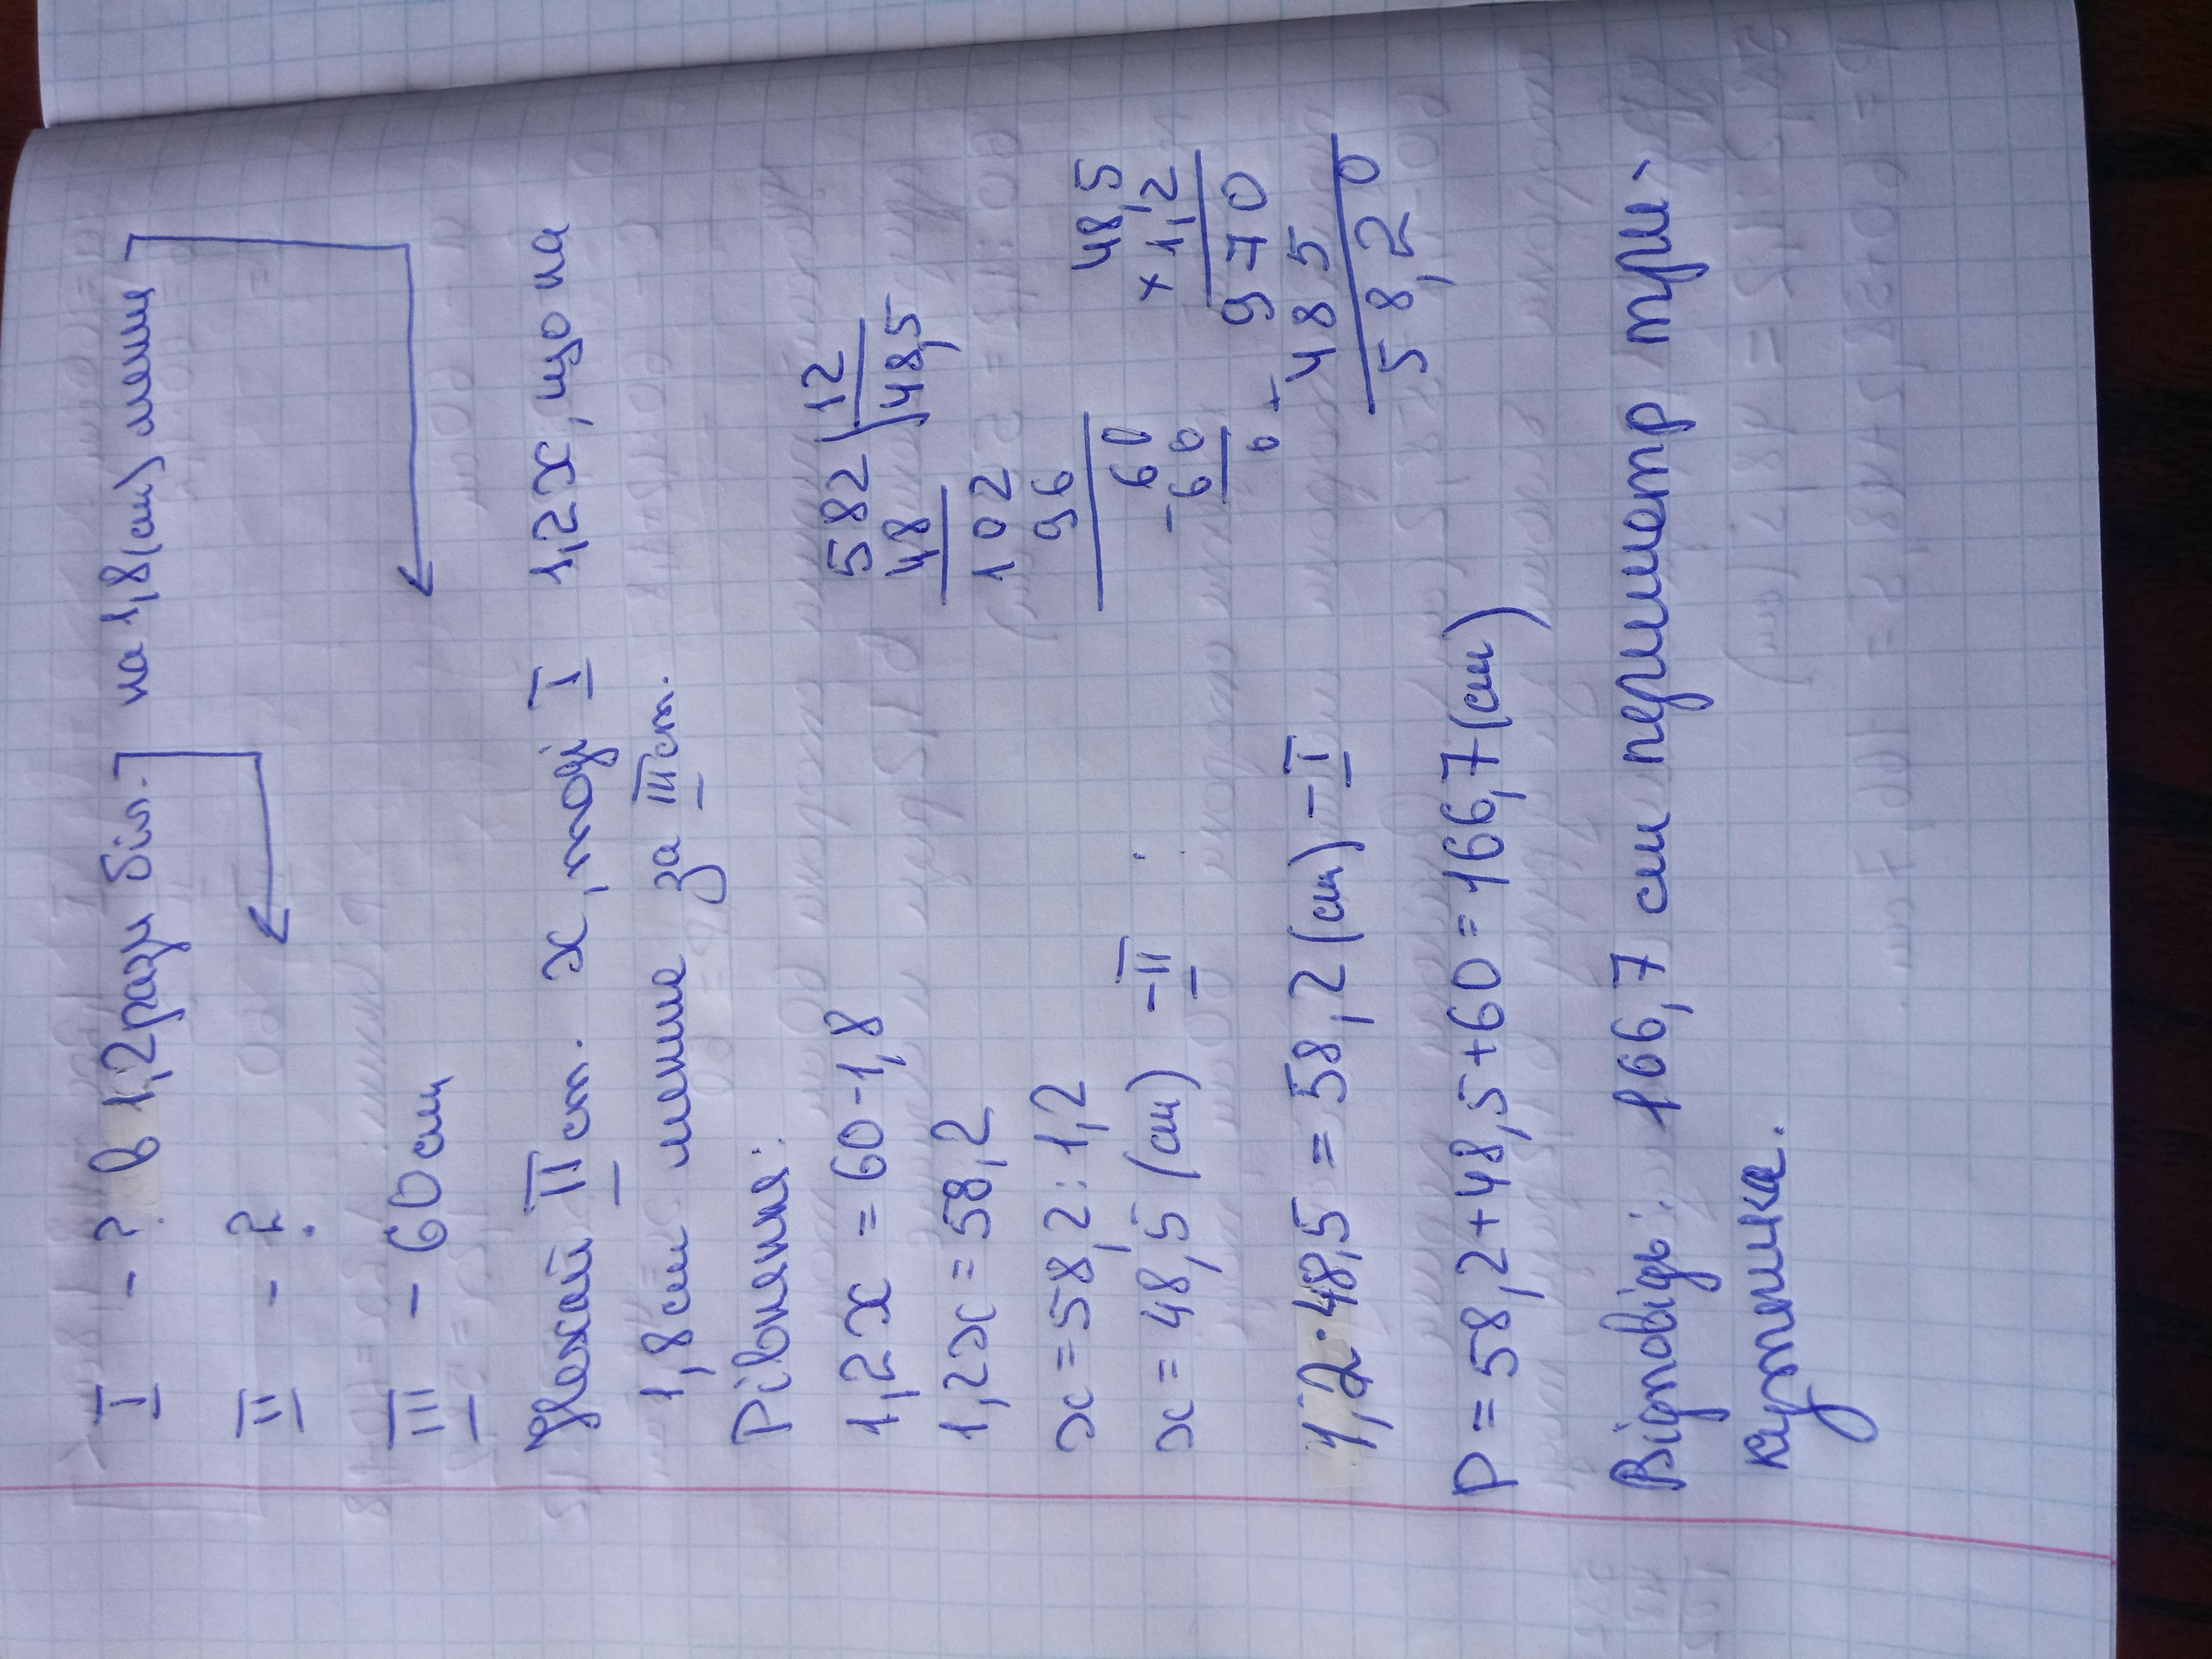 I - ? в 1,2 рази біл.] на 1,8 (см) менш]
II - ?
III - 60 см
Нехай II ст. x, тоді I 1,2x, що на
1,8 см менше за III ст.
Рівняння:
1,2x = 60-1,8
1,2x = 58,2
x = 58,2 : 1,2
x = 48,5 (см) - II
1,2 · 48,5 = 58,2 (см) - I
P = 58,2+48,5+60 = 166,7 (см)
Відповідь: 166,7 см периметр три-
кутника.
582 12
48 48,5
102
96
60
-60
0
48,5
× 1,2
970
+ 485
58,20